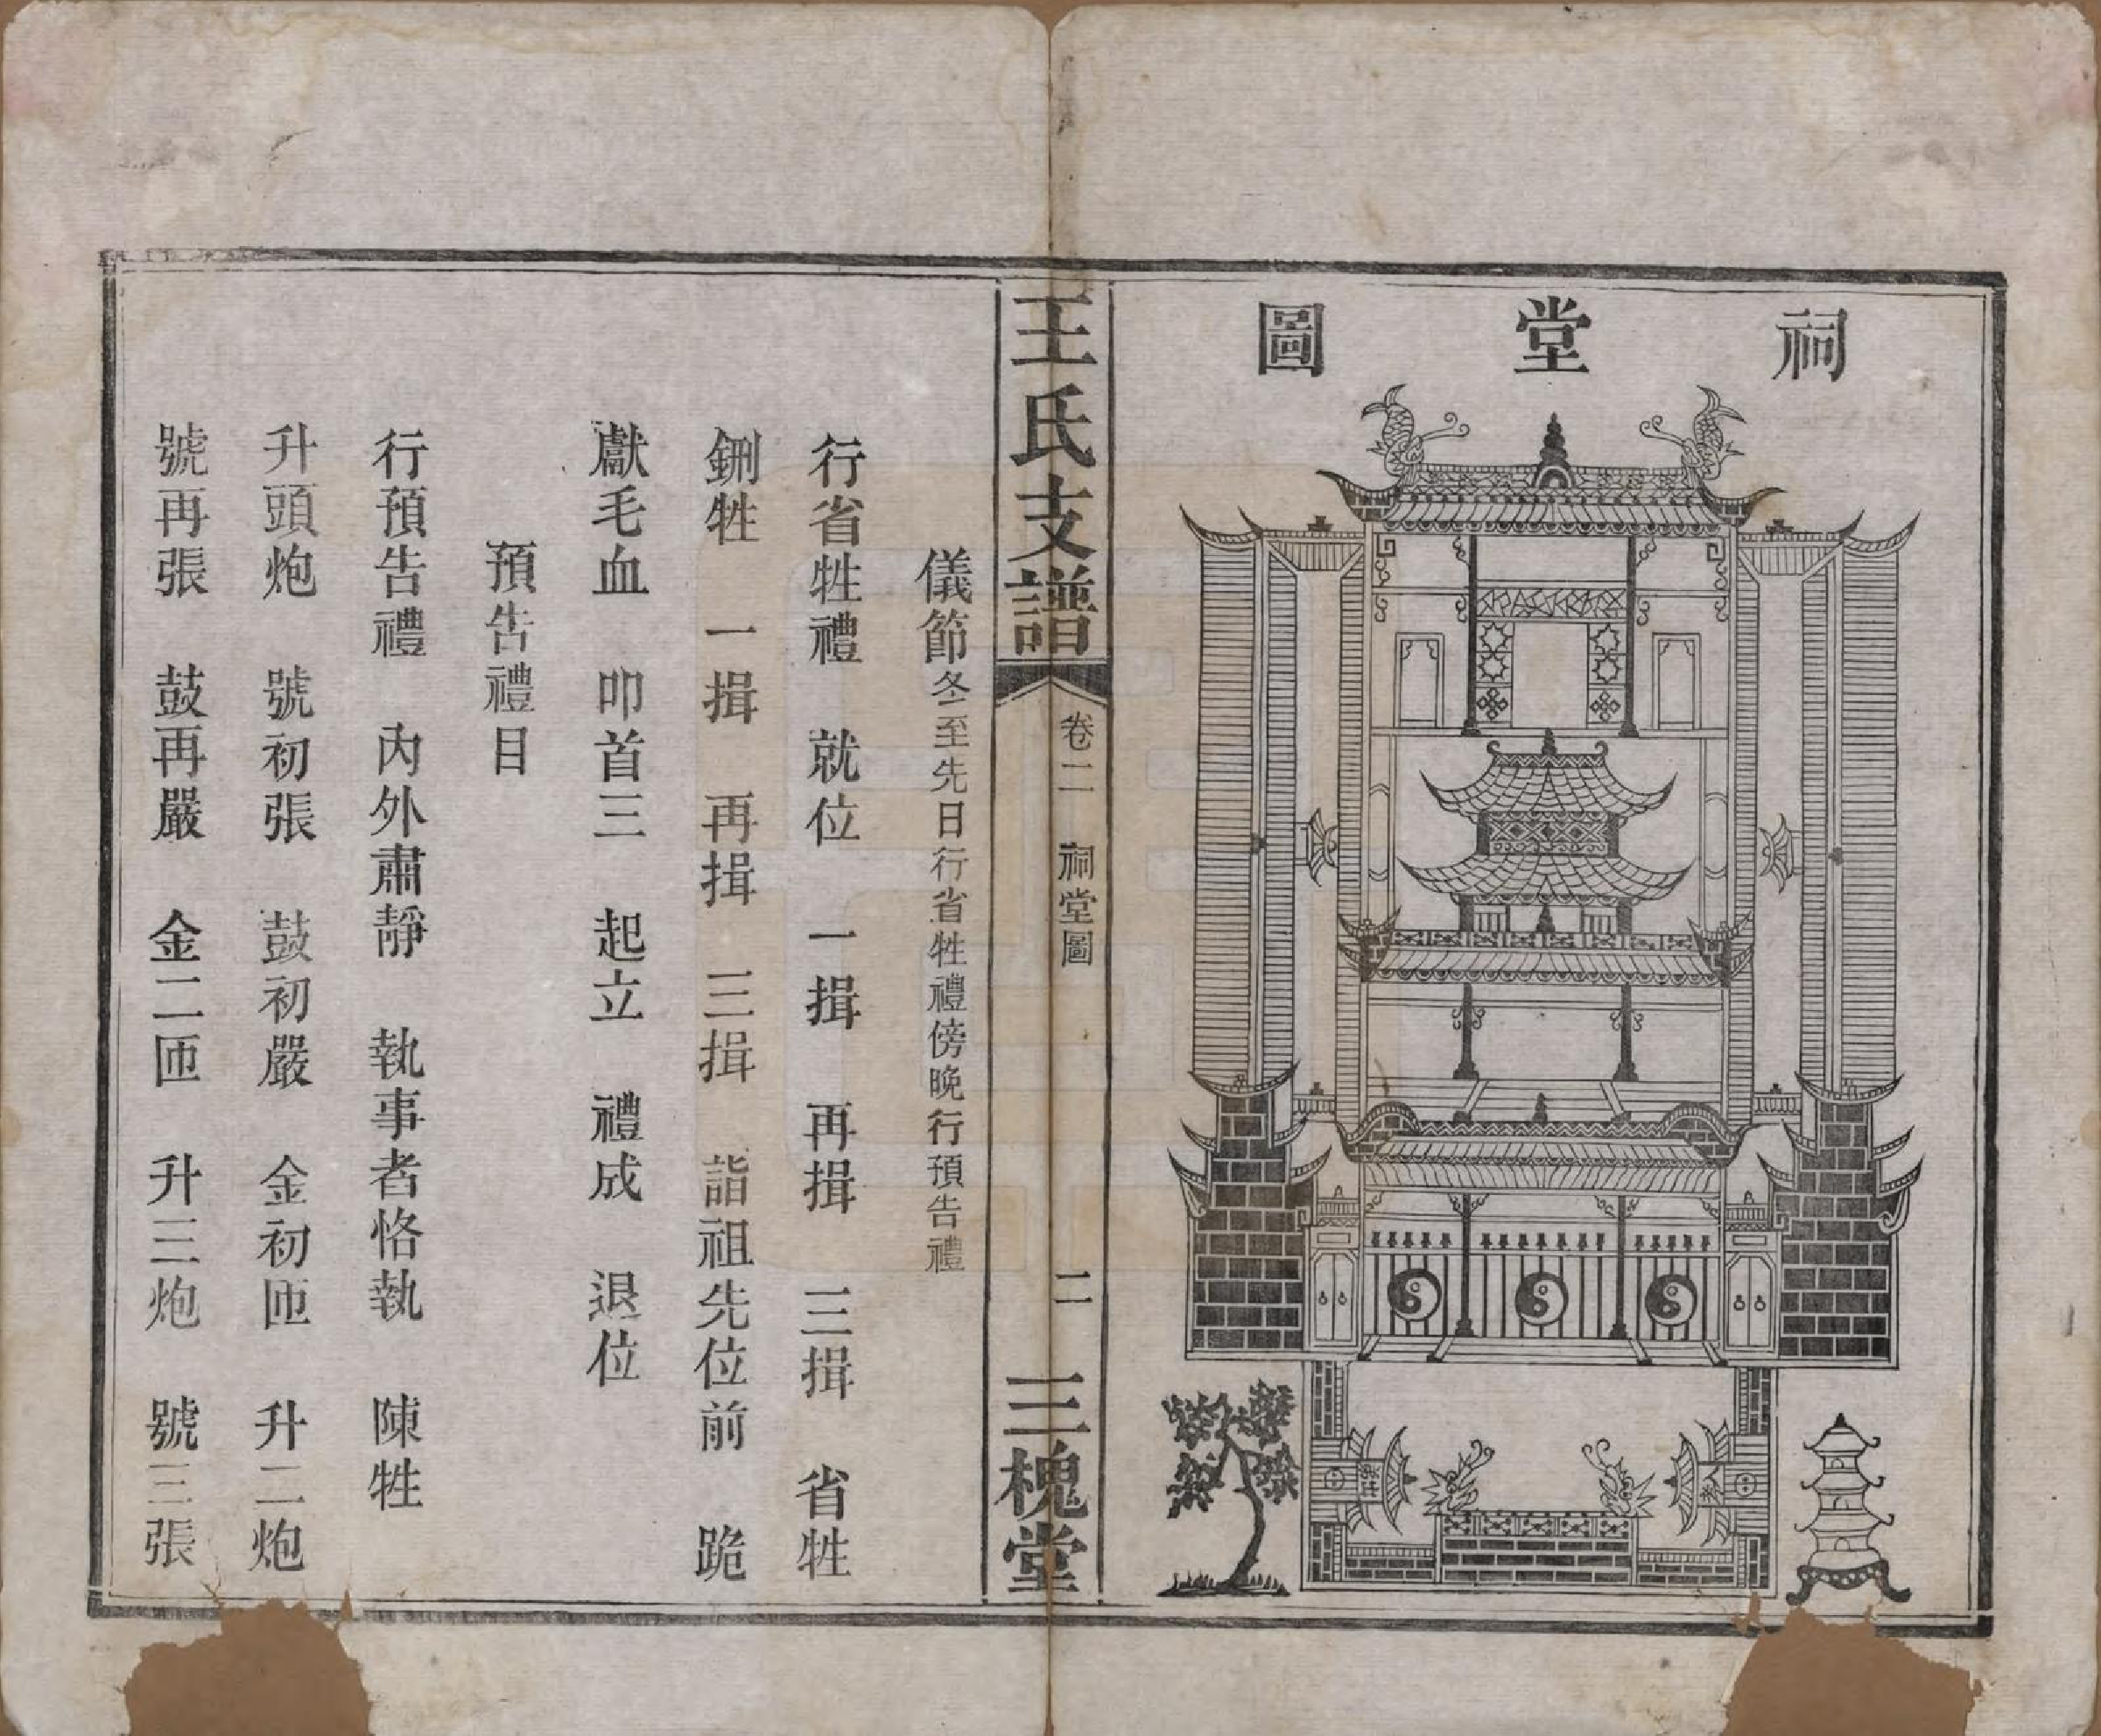 祠堂圖
王氏支譜
卷二 祠堂圖
二
三槐堂
儀節冬至先日行省牲禮傍晚行預告禮
行省牲禮 就位 一揖 再揖 三揖 省牲
鉶牲 一揖 再揖 三揖 詣祖先位前 跪
獻毛血 叩首三 起立 禮成 退位
預告禮目
行預告禮 內外肅靜 執事者恪執 陳牲
升頭炮 號初張 鼓初嚴 金初匝 升二炮
號再張 鼓再嚴 金二匝 升三炮 號三張